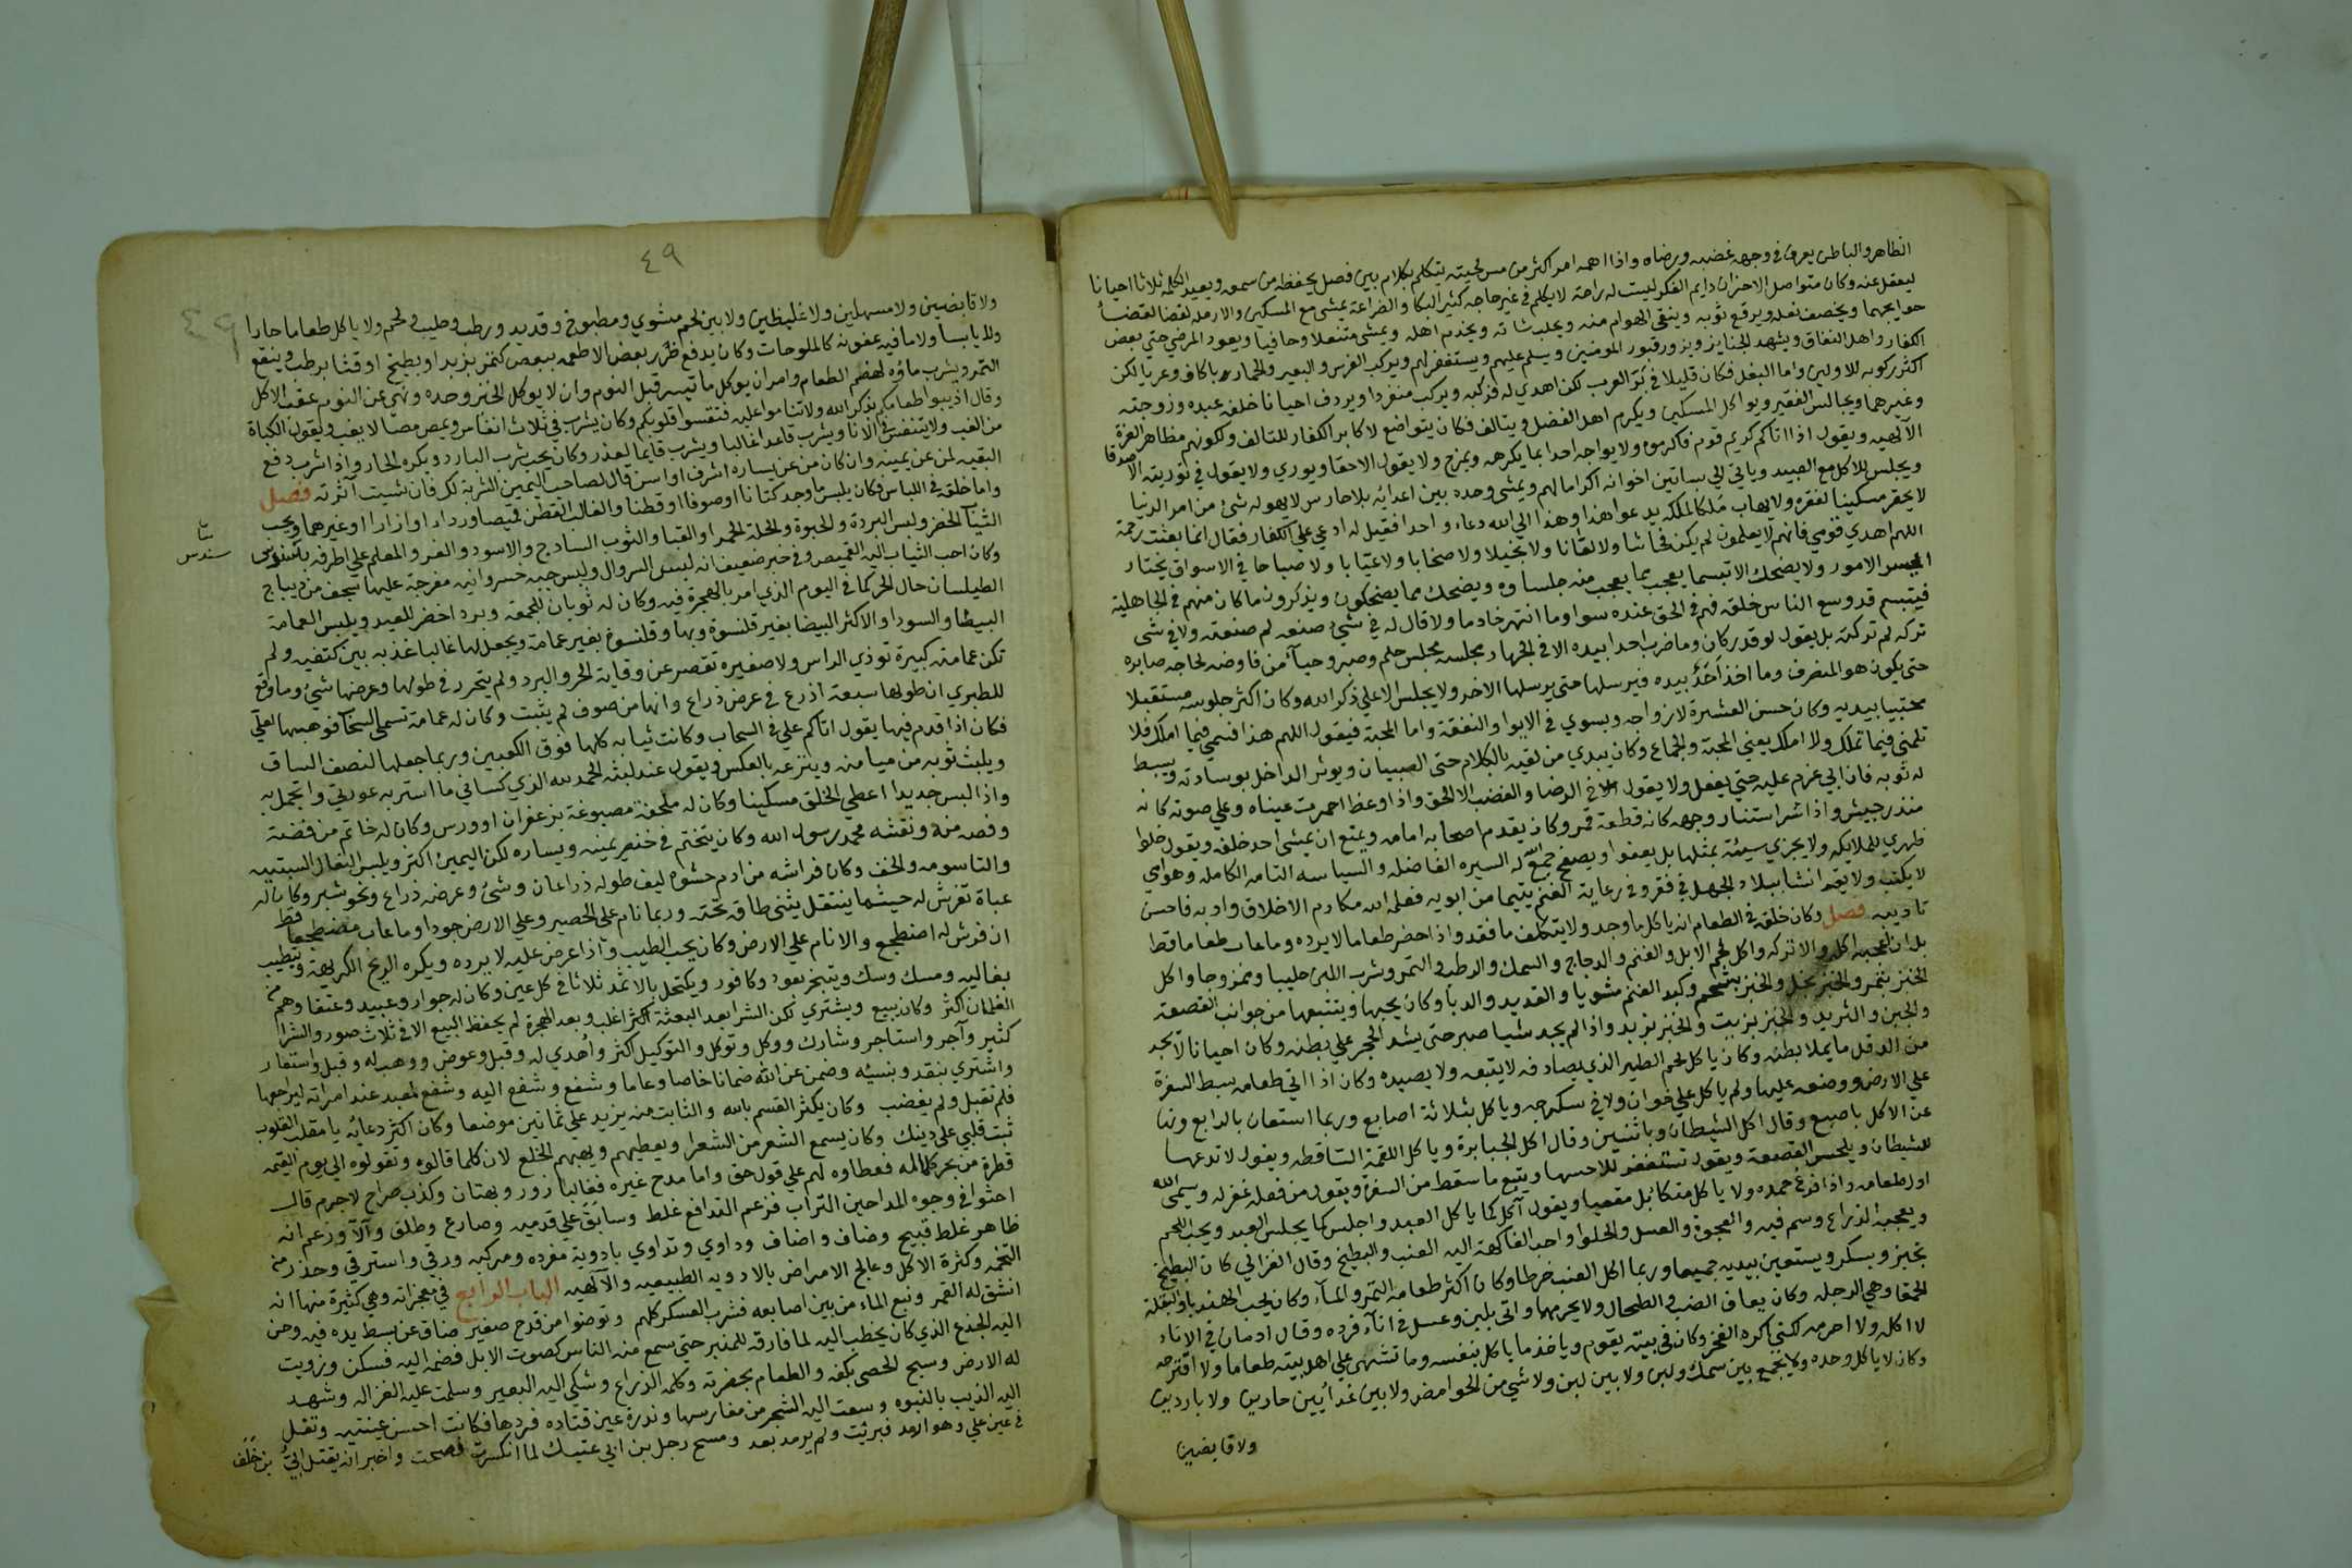 الظاهر والباطن يعرف في وجهه غضبه ورضاه واذا اهمه امر اكثر من مس لحيته يتكلم بكلام بين فصل يحفظه من سمعه ويعيد الكلمة ثلاثا احيانا
ليعقل عنه وكان متواصل الاحزان دايم الفكر ليست له راحة لا يكلم في غير حاجه كثير البكا والضراعة يمشي مع المسكين والارمله لقضا
حوايجهما ويخصف نعله ويرقع ثوبه وينقي الهوام منه ويحلب شاته ويخدم اهله ويمشي متنعلا وحافيا ويعود المرضي حتي بعض
الكفار واهل النفاق ويشهد الجنايز ويزور قبور المومنين ويسلم عليهم ويستغفر لهم ويركب الفرس والبعير والحمار باكاف وعريا لكن
اكثر ركوبه للاولين واما البغل فكان قليلا في العرب لكن اهدي له فركبه ويركب منفردا ويردف احيانا خلفه عبده وزوجته
وغيرهما ويجالس الفقير ويواكل المسكين ويكرم اهل الفضل ويتالف فكان يتواضع لاكابر الكفار للتالف ولكونهم مظاهر العزة
الالهيه ويقول اذا اتاكم كريم قوم فاكرموه ولا يواجه احدا بما يكرهه ويمزح ولا يقول الا حقا ويوري ولا يقول في توريته الا صدقا
ويجلس للاكل مع العبيد وياتي الي بساتين اخوانه اكراما لهم ويمشي وحده بين اعدائه بلا حارس لا يهوله شئ من امر الدنيا
لا يحقر مسكينا لفقره ولا يهاب ملكا لملكه يدعو هذا وهذا الي الله دعاء واحدا فقيل له ادعي علي الكفار فقال انما بعثت رحمة
اللهم اهدي قومي فانهم لا يعلمون لم يكن فحاشا ولا لعانا ولا بخيلا ولا صخابا ولا عيابا ولا صياحا في الاسواق يختار
ايسر الامور ولا يضحك الا تبسما يعجب مما يعجب منه جلساوه ويضحك مما يضحكون ويذكرون ما كان منهم في الجاهلية
فيتبسم قد وسع الناس خلقه فهم في الحق عنده سوا وما انتهر خادما ولا قال له في شئ صنعه لم صنعته ولا في شئ
تركه لم تركته بل يقول لو قدر كان وما ضرب احدا بيده الا في الجهاد مجلسه مجلس حلم وصبر وحيآء من فاوضه لحاجه صابره
حتي يكون هو المنصرف وما اخذ احد بيده فيرسلها حتي يرسلها الاخر ولا يجلس الا علي ذكر الله وكان اكثر جلوسه مستقبلا
محتبيا بيديه وكان حسن العشرة لازواجه ويسوي في الايوا والنفقة واما المحبة فيقول اللهم هذا قسمي فيما املك فلا
تلمني فيما تملك ولا املك يعني المحبة والجماع وكان يبدي من لقيه بالكلام حتي الصبيان ويوثر الداخل بوسادته ويبسط
له ثوبه فان ابي عزم عليه حتي يفعل ولا يقول في الرضا والغضب الا الحق واذا وعظ احمرت عيناه وعلي صوته كانه
منذر جيش واذا سر استنار وجهه كانه قطعة قمر وكان يقدم اصحابه امامه ويمنع ان يمشي احد خلفه ويقول خلوا
ظهري للملايكه ولا يجزي سيئة بمثلها بل يعفوا ويصفح جمع له السيره الفاضله والسياسه التامه الكامله وهو امي
لا يكتب ولا يقرا نشا ببلاد الجهل في فقر وفي رعاية الغنم يتيما من ابويه فعلمه الله مكارم الاخلاق وادبه فاحسن
تاديبه فصل وكان خلقه في الطعام انه ياكل ما وجد ولا يتكلف ما فقد واذا حضر طعاما لا يرده وما عاب طعاما قط
بل ان اعجبه اكله والا تركه واكل لحم الابل والغنم والدجاج والسمك والرطب والتمر وشرب اللبن حليبا وممزوجا واكل
الخبز بتمر والخبز بخل والخبز بشحم وكبد الغنم مشويا والقديد والدبا وكان يحبها ويتتبعها من جوانب القصعة
والجبن والثريد والخبز بزيت والخبز بزبد واذا لم يجد شيا صبر حتي يشد الحجر علي بطنه وكان احيانا لا يجد
من الدقل ما يملا بطنه وكان ياكل لحم الطير الذي يصاد فه لا يتبعه ولا يصيده وكان اذا اتي طعامه بسط السفرة
علي الارض ووضعه عليها ولم ياكل علي خوان ولا في سكرجه وياكل بثلاثة اصابع وربما استعان بالرابع ونها
عن الاكل باصبع وقال اكل الشيطان وباثنين وقال اكل الجبابرة وياكل اللقمة الساقطه ويقول لا تدعها
للشيطان ويلحس القصعة ويقول تستغفر للاحسها ويتبع ما سقط من السفرة ويقول من فعله غفر له ويسمي الله
اول طعامه واذا فرغ حمده ولا ياكل متكا بل مقعيا ويقول آكل كما ياكل العبد واجلس كما يجلس العبد ويحب اللحم
ويعجبه الذراع وسم فيه والعجوة والعسل والحلوا واحب الفاكهة اليه العنب والبطيخ وقال الغزالي كان البطيخ
بخبز وبسكر ويستعين بيديه جميعا وربما اكل العنب خرطا وكان اكثر طعامه التمر والمآء وكان يحب الهندبا والبقلة
الحمقا وهي الرجله وكان يعاف الضب والطحال ولا يحرمهما واتي بلبن وعسل في انآء فرده وقال ادمان في الاناء
لا اكله ولا احرمه لكني اكره الفخر وكان في بيته يقوم وياخذ ما ياكل بنفسه وما تشهي علي اهل بيته طعاما ولا اقترحه
وكان لا ياكل وحده ولا يجمع بين سمك ولبن ولا بين لبن ولا شي من الحوامض ولا بين غدآيين حارين ولا باردين
ولا قابضين
٤٩
ولا قابضين ولا مسهلين ولا غليظين ولا بين لحم مشوي ومطبوخ وقديد ورطب وحليب ولحم ولا ياكل طعاما حارا
ولا يابسا ولا ما فيه عفونه كالملوحات وكان يدفع ضرر بعض الاطعمه ببعض كتمر بزبد او بطيخ او قثا برطب وينقع
التمر ويشرب ماؤه لهضم الطعام وامر ان يوكل ما تيسر قبل النوم وان لا يوكل الخبز وحده ونهي عن النوم عقب الاكل
وقال اذيبوا طعامكم بذكر الله ولا تناموا عليه فتقسوا قلوبكم وكان يشرب في ثلاث انفاس ويمص مصا لا يعب ويقول الكباد
من العب ولا يتنفس في الانا ويشرب قاعدا غالبا ويشرب قايما لعذر وكان يحب شرب البارد ويكره الحار واذا شرب دفع
البقيه لمن عن يمينه وان كان من عن يساره اشرف او اسن قال لصاحب اليمين الشربة لك فان شيت آثرته فصل
واما خلقه في اللباس فكان يلبس ما وجد كتانا او صوفا او قطنا والغالب القطن قميصا ورداء او ازارا او غيرهما ويحب
الثياب الخضر ولبس البردة والحبرة والحلة الحمرا والقبا والثوب الساذج والاسود والفرو المعلم علي اطرفه بسندس
سندس
وكان احب الثياب اليه القميص وفي خبر ضعيف انه لبس السروال ولبس جبه خسروانيه مفرجة عليها سجف من ديباج
الطيلسان حال الحر كما في اليوم الذي امر بالهجرة فيه وكان له ثوبان للجمعة وبرد اخضر للعيد ويلبس العمامة
البيضا والسودا والاكثر البيضا بغير قلنسوة وبها وقلنسوة بغير عمامة ويجعل لها غالبا عذبه بين كتفيه ولم
تكن عمامته كبيرة توذي الراس ولا صغيره تقصر عن وقاية الحر والبرد ولم يتحرر في طولها وعرضها شئ وما وقع
للطبري ان طولها سبعة اذرع في عرض ذراع وانها من صوف لم يثبت وكان له عمامة تسمي السحاب فوهبها لعلي
فكان اذا قدم فيها يقول اتاكم علي في السحاب وكانت ثيابه كلها فوق الكعبين وربما جعلها لنصف الساق
ويلبث ثوبه من ميامنه وينزعه بالعكس ويقول عند لبثه الحمد لله الذي كساني ما استر به عورتي واتجمل به
واذا لبس جديدا اعطي الخلق مسكينا وكان له ملحفة مصبوغة بزعفران او ورس وكان له خاتم من فضة
وفصه منه ونقشه محمد رسول الله وكان يتختم في خنصر يمينه ويساره لكن اليمين اكثر ويلبس النعال السبتيه
والتاسومه والخف وكان فراشه من ادم حشوه ليف طوله ذراعان وشئ وعرضه ذراع ونحو شبر وكان له
عباة تفرش له حيثما ينتقل يثنى طاقه تحته وربما نام علي الحصير وعلي الارض جودا وما عاب مضطجعا قط
ان فرش له اضطجع والا نام علي الارض وكان يحب الطيب واذا عرض عليه لا يرده ويكره الريح الكريهة ويتطيب
بغاليه ومسك وسك ويتبخر بعود وكافور ويكتحل بالاثمد ثلاثا في كل عين وكان له جوار وعبيد وعتقا وهم من
الغلمان اكثر وكان يبيع ويشتري لكن الشرا بعد البعثة اكثر اغلب وبعد الهجرة لم يحفظ البيع الا في ثلاث صور والشرا
كثير وآجر واستاجر وشارك ووكل وتوكل والتوكيل اكثر واهدي له وقبل وعوض ووهب له وقبل واستعار
واشتري بنقد وبنسيه وضمن عن الله ضمانا خاصا وعاما وشفع وشفع اليه وشفع لمعبد عند امراته ليراجعها
فلم تقبل ولم يغضب وكان يكثر القسم بالله والثابت منه يزيد علي ثمانين موضعا وكان اكثر دعايه يا مقلب القلوب
ثبت قلبي علي دينك وكان يسمع الشعر من الشعرا ويعطيهم ويهبهم الخلع لان كلما قالوه وتقولوه الي يوم القيمه
قطرة من بحر كماله فعطاوه لهم علي قول حق واما مدح غيره فغالبا زور وبهتان وكذب صراح لا جرم قال
احثوا في وجوه المداحين التراب فزعم التدافع غلط وسابق علي قدميه وصارع وطلق وآلآ وزعم انه
ظاهر غلط قبيح وضاف واضاف وداوي وتداوي بادوية مفرده ومركبه ورقي واسترقي وحذر من
التخمه وكثرة الاكل وعالج الامراض بالادويه الطبيعيه والالهيه الباب الرابع في معجزاته وهي كثيرة منها انه
انشق له القمر ونبع الماء من بين اصابعه فشرب العسكر كلهم وتوضوا من قدح صغير ضاق عن بسط يده فيه وحن
اليه الجذع الذي كان يخطب اليه لما فارقه للمنبر حتي سمع منه الناس كصوت الابل فضمه اليه فسكن وزويت
له الارض وسبح الحصي بكفه والطعام بحضرته وكلمه الذراع وشكي اليه البعير وسلمت عليه الغزاله وشهد
اليه الذيب بالنبوه وسعت اليه الشجر من مغارسها وندرة عين قتاده فردها فكانت احسن عينيه وتفل
في عين علي وهو ارمد فبرئت ولم يرمد بعد ومسح رجل بن ابي عتيك لما انكسرت فصحت واخبر انه يقتل ابي بن خلف